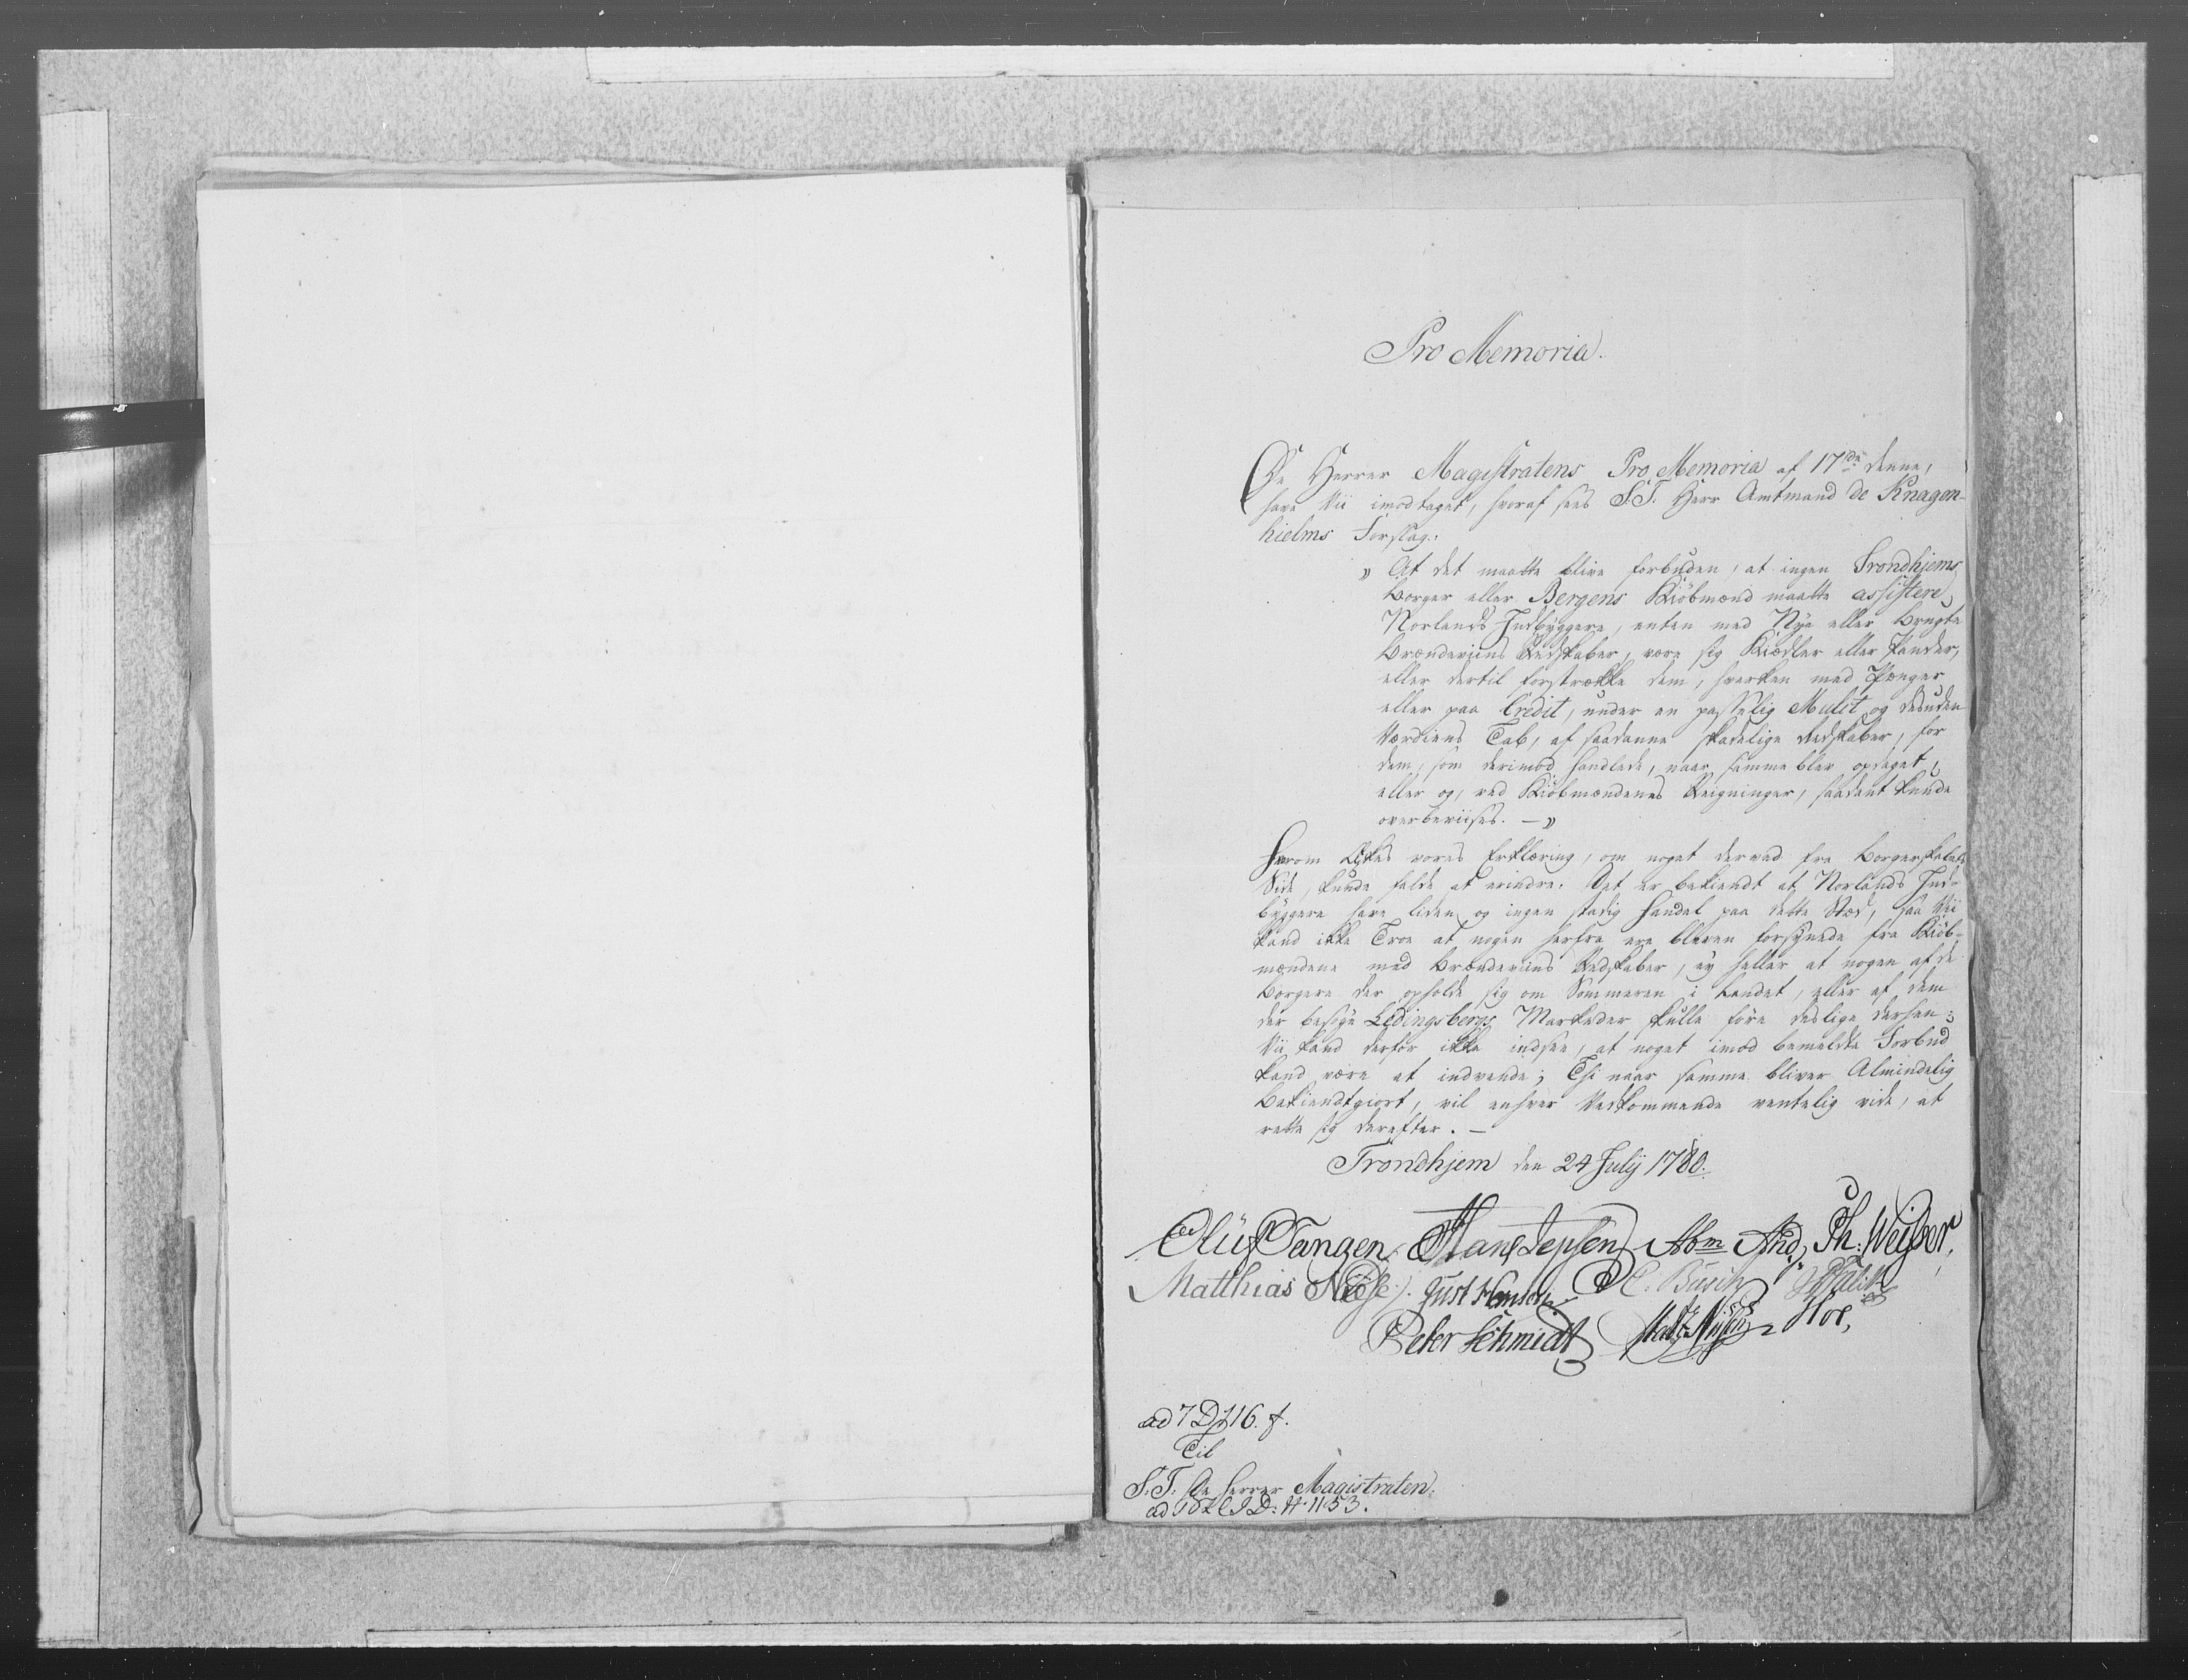 Pro Memoria.
De Herrer Magistratens Pro Memoria af 17de denne,
have Vii imodtaget, hvoraf sees S:T: Herr Amtmand de Knagen-
hielms Forslag:
" At det maatte blive forbuden, at ingen Trondhjems
Borger eller Bergens Kiöbmænd maatte assistere
Norlands Indbyggere, enten med Nye eller brugte
Brændeviins Redskaber, være sig Kiædler eller Pander,
eller dertil forstrække dem, hverken med Penger
eller paa Credit, under en passelig Mulct, og desuden
Værdiens Tab, af saadanne skadelige Redskaber, for
dem, som derimod handlede, naar samme blev opdaget,
eller og, ved Kiöbmændenes Reigninger, saadant kunde
overbeviises. — "
Hvorom Æskes vores Erklæring, om noget derved fra Borgerskabets
Side, kunde falde at erindre. Det er bekiendt at Norlands Ind-
byggere have liden og ingen stadig Handel paa dette Stæd, saa Vii
kand ikke Troe at nogen herfra ere bleven forsynede fra Kiöb-
mændene med Brændeviins Redskaber, ey heller at nogen af de
Borgere der opholde sig om Sommeren i Landet, eller af dem
der besöge Lédingsbergs Markeder skulle före deslige derhen;
Vii kand derfor ikke indsee, at noget imod bemeldte Forbud
kand være at indvende; Thi naar samme bliver Almindelig
Bekiendtgiort, vil enhver Vedkommende ventelig vide, at
rette sig derefter. —
Trondhjem den 24 Julÿ 1780.
Oluf Tangen Hans Jepsen Abm And, Th: Weyber,
Matthias Just Hansen C. Busch
Peter Schmidt Matz Nissen Hoe,
ad 7 D 116. f.
Til
S.T. De Herrer Magistraten.
ad D: № 1153.